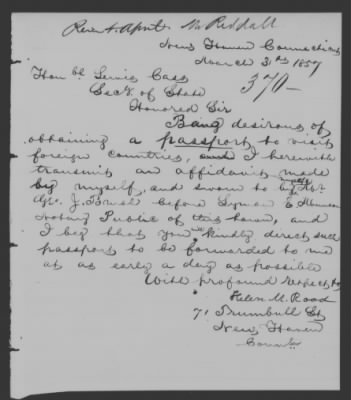 Recd 4. April Mr Riddall
New Haven Connecticut
March 31st 1857
Honble Lewis Cass
370-
Secy of State
Honored Sir
Being desirous of
obtaining a passport to visit
foreign countries, I herewith
transmit an affidavit made
by myself, and sworn to by
J. Brush before Lyman E. Munson
Notary Public of this haven, and
I beg that you will kindly direct such
passport to be forwarded to me
at as early a day as possible
With profound respect
Helen M. Rood
71 Trumbull St
New Haven
Conn